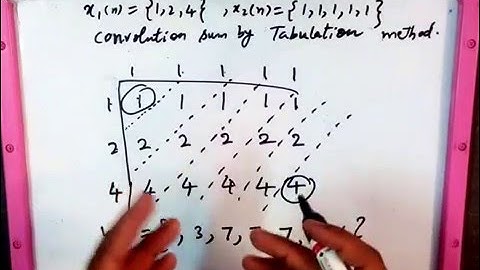 x₁(n) = {1,2,4} , x₂(n) = {1,1,1,1,1}
convolution sum by Tabulation method.
1 1 1 1 1
1 1 1 1 1 1
2 2 2 2 2 2
4 4 4 4 4 4
= 3, 7, 7,